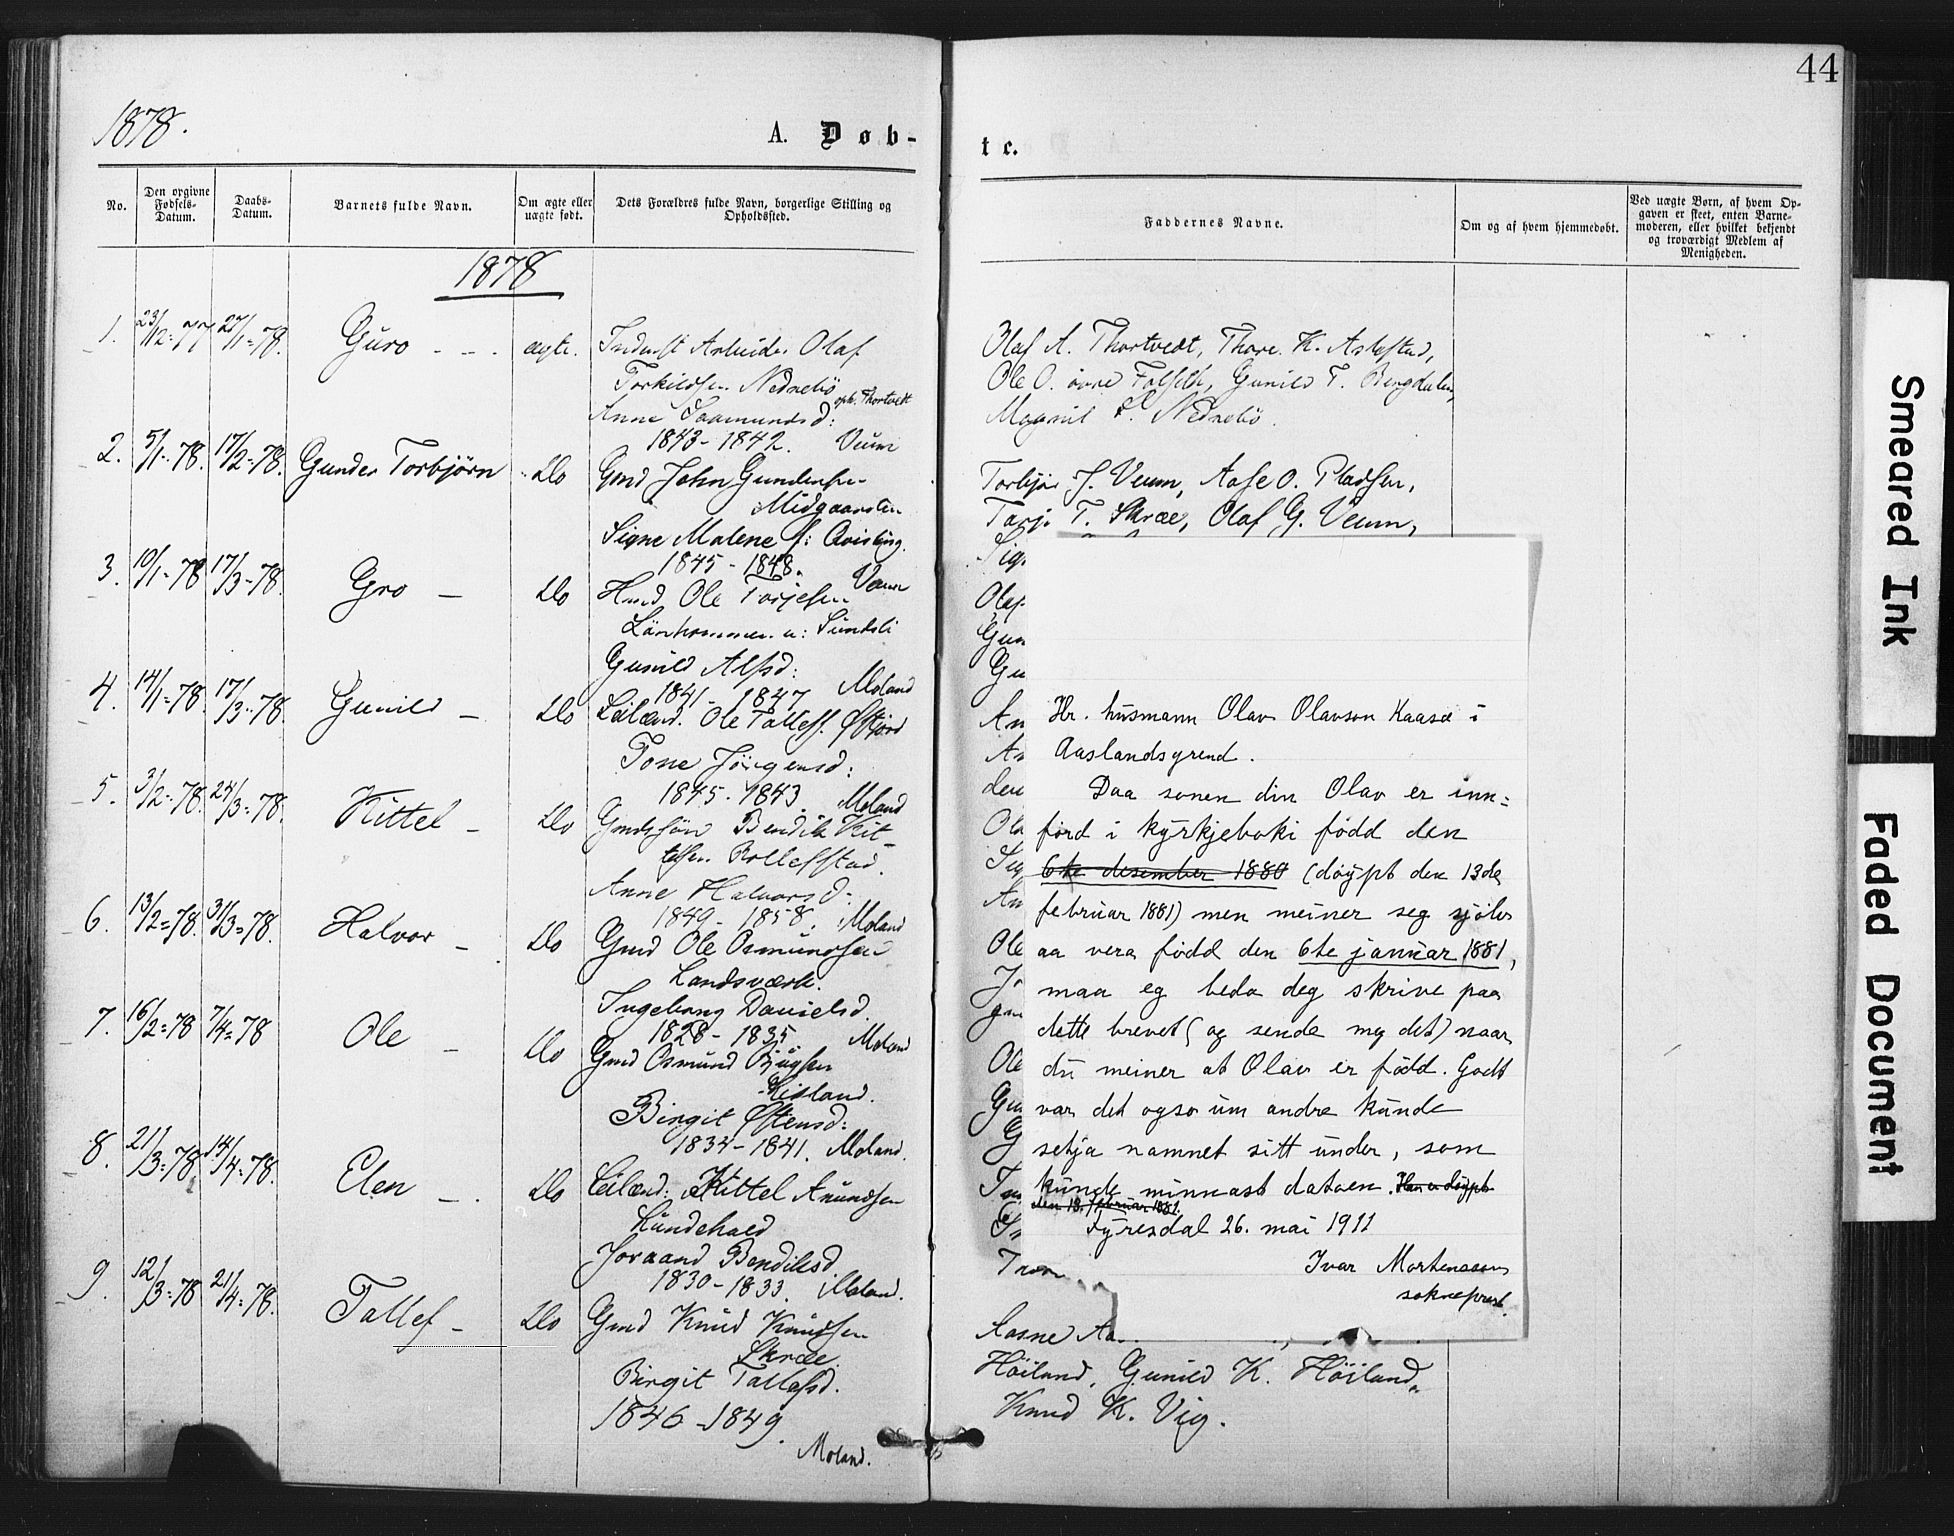 44
1878.
A. Døb-
te.
No.
Den opgivne Fødsels-Datum.
Daabs-Datum.
Barnets fulde Navn.
Om ægte eller uægte født.
Dets Forældres fulde Navn, borgerlige Stilling og Opholdssted.
Faddernes Navne.
Om og af hvem hjemmedøbt.
Ved uægte Børn, af hvem Opgaven er skeet, enten Barnemoderen, eller hvilket bekjendt og troværdigt Medlem af Menigheden.
1878
1. 23/12=77 27/1=78. Guro - - - ægte. Inderst Arbeider Olaf
Torkildsen Nednebö
oph. Thortvedt
Anne Saamundsd:
1843-1842. Veum
2. 5/1-78. 17/2=78. Gunder Torbjörn Do Gmd John Gundersen
Midgaarden
Signe Malene f: Qvisling.
1845-1848. Veum
3. 10/1-78 17/3-78. Gro - Do Hmd Ole Torjesen
u: Sundsli
Gunild Alfsd:
1841-1847 Moland
4. 14/1-78. 17/3-78. Gunild - Do Leilænd. Ole Tallefs. Øftjord
Tone Jörgensd:
1845-1843. Moland
5. 3/2-78. 24/3-78. Kittel - Do Gmdssön Bendik Kit-
telsen Rollefstad.
Anne Halvorsd:
1849-1858. Moland
6. 13/2=78. 31/3=78. Halvor - Do Gmd Ole Osmundsen
Landsværk.
Ingeborg Danielsd.
1828-1835. Moland
7. 16/2=78 7/4=78 Ole - Do Gmd Osmund Gjugsen
Kisland.
Birgit Øftensd:
1834-1841. Moland.
8. 21/3=78 14/4=78. Elen - . Do Leilænd: Kittel Anundsen
Lundehald
Joraand Bendiksd
1830-1833. Moland.
9. 12/3=78 21/4=78. Tallef - Do Gmd Knud Knudsen
Skræe.
Birgit Tallefsd.
1846-1849.
Moland.
Olaf A. Thortvedt, Thore K. Askestad,
Ole O. övre Folseth, Gunild T. Bergdalen,
Magnil T. Nednebö.
Torbjör J. Veum, Aase O. Pladsen,
Tarje T. Skræe, Olaf G. Veum,
Sig
Olaf
Gun
Gu
An
An
den
Ola
Sig
An
Ole
J
gm
Ole
Gu
G
T
Hr. husmann Olav Olavson Kaasa i
Aaslandsgrend.
Daa sonen din Olav er inn=
förd i kyrkjeboki född den
6te desember 1880 (döypt den 13de
februar 1881) men meiner seg sjölv
aa vera född den 6te januar 1881,
maa eg beda deg skrive paa
dette brevet (og sende meg det) naar
du meiner at Olav er född. Godt
var det ogso um andre kunde
setja namnet sitt under, som
kunde minnast datoen. Han er döypt
den 13. februar 1881.
Fyresdal 26. mai 1911
Ivar Mortensson
sokneprest.
Aasne Aa
Höiland, Gunild K. Höiland,
Knud K. Vig.
Smeared Ink
Faded Document